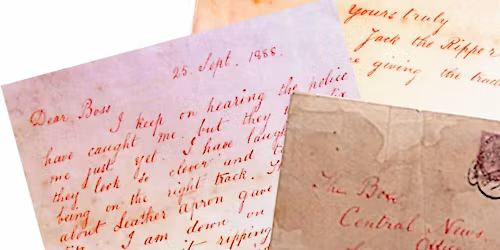 25. Sept. 1888.
Dear Boss
I keep on hearing the police
have caught me but they
me just yet. I have laugh
they look so clever and
being on the right track.
about Leather apron gave
I am down on
ripping
yours truly
Jack the Ripper
giving the trade
The Boss
Central News
Office